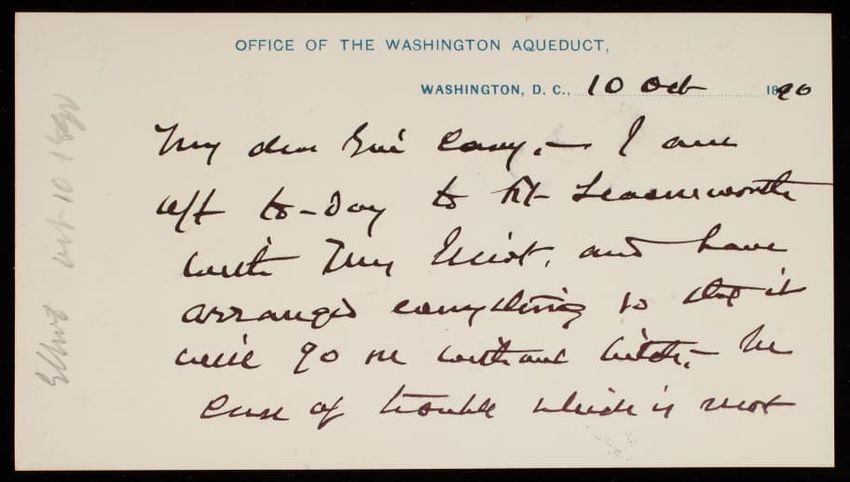 OFFICE OF THE WASHINGTON AQUEDUCT,
WASHINGTON, D. C., 10 Oct 1890
My dear Gen'l Casey,— I am
off to-Day to Ft. Leavenworth
with Mrs Elliot, and have
arranged everything so that it
will go on without hitch,— In
case of trouble which is not
Oct 10 1890